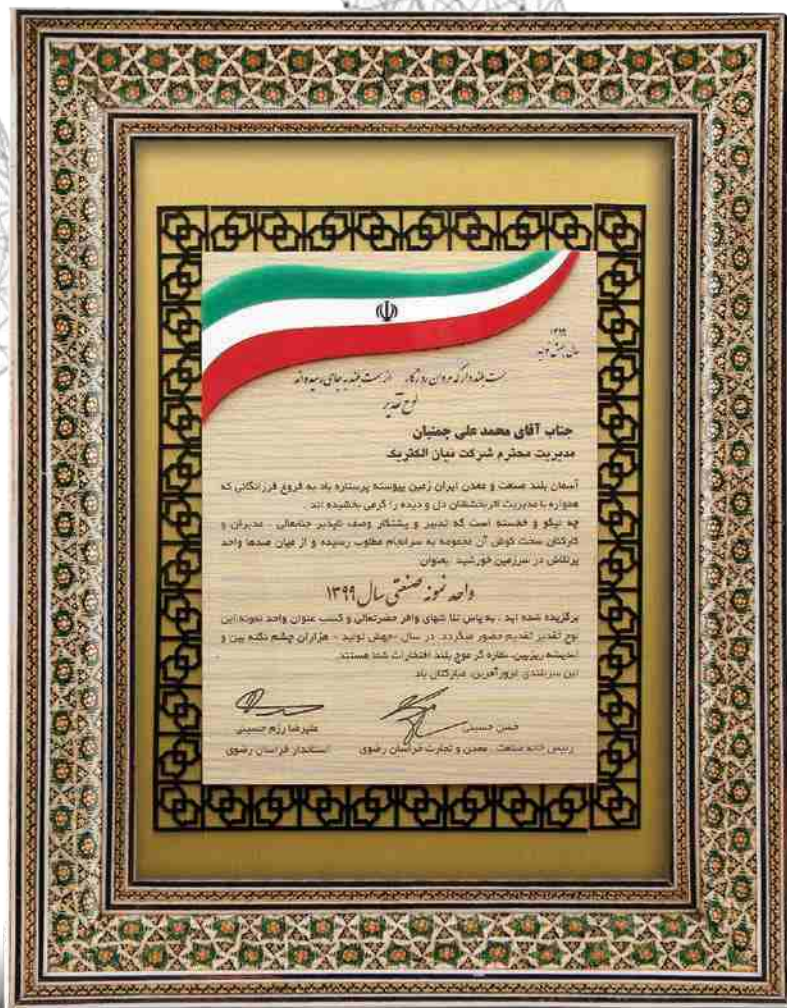 ۱۳۹۹
سال جهش تولید
همت بلند دار که مردان روزگار از همت بلند به جای رسیده‌اند
لوح تقدیر
جناب آقای محمد علی چمنیان
مدیریت محترم شرکت میان الکتریک
آسمان بلند صنعت و معدن ایران زمین پیوسته پرستاره باد به فروغ فرزانگانی که
همواره با مدیریت اثربخششان دل و دیده را گرمی بخشیده اند .
چه نیکو و خجسته است که تدبیر و پشتکار وصف ناپذیر جنابعالی ، مدیران و
کارکنان سخت کوش آن مجموعه به سرانجام مطلوب رسیده و از میان صدها واحد
پرتلاش در سرزمین خورشید بعنوان
واحد نمونه صنعتی سال ۱۳۹۹
برگزیده شده اید . به پاس تلا شهای وافر حضرتعالی و کسب عنوان واحد نمونه این
لوح تقدیر تقدیم حضور میگردد. در سال جهش تولید ، هزاران چشم نکته بین و
اندیشه ریزبین، نظاره گر موج بلند افتخارات شما هستند.
این سربلندی غرورآفرین، مبارکتان باد
حسن حسینی
رییس خانه صنعت ، معدن و تجارت خراسان رضوی
علیرضا رزم حسینی
استاندار خراسان رضوی